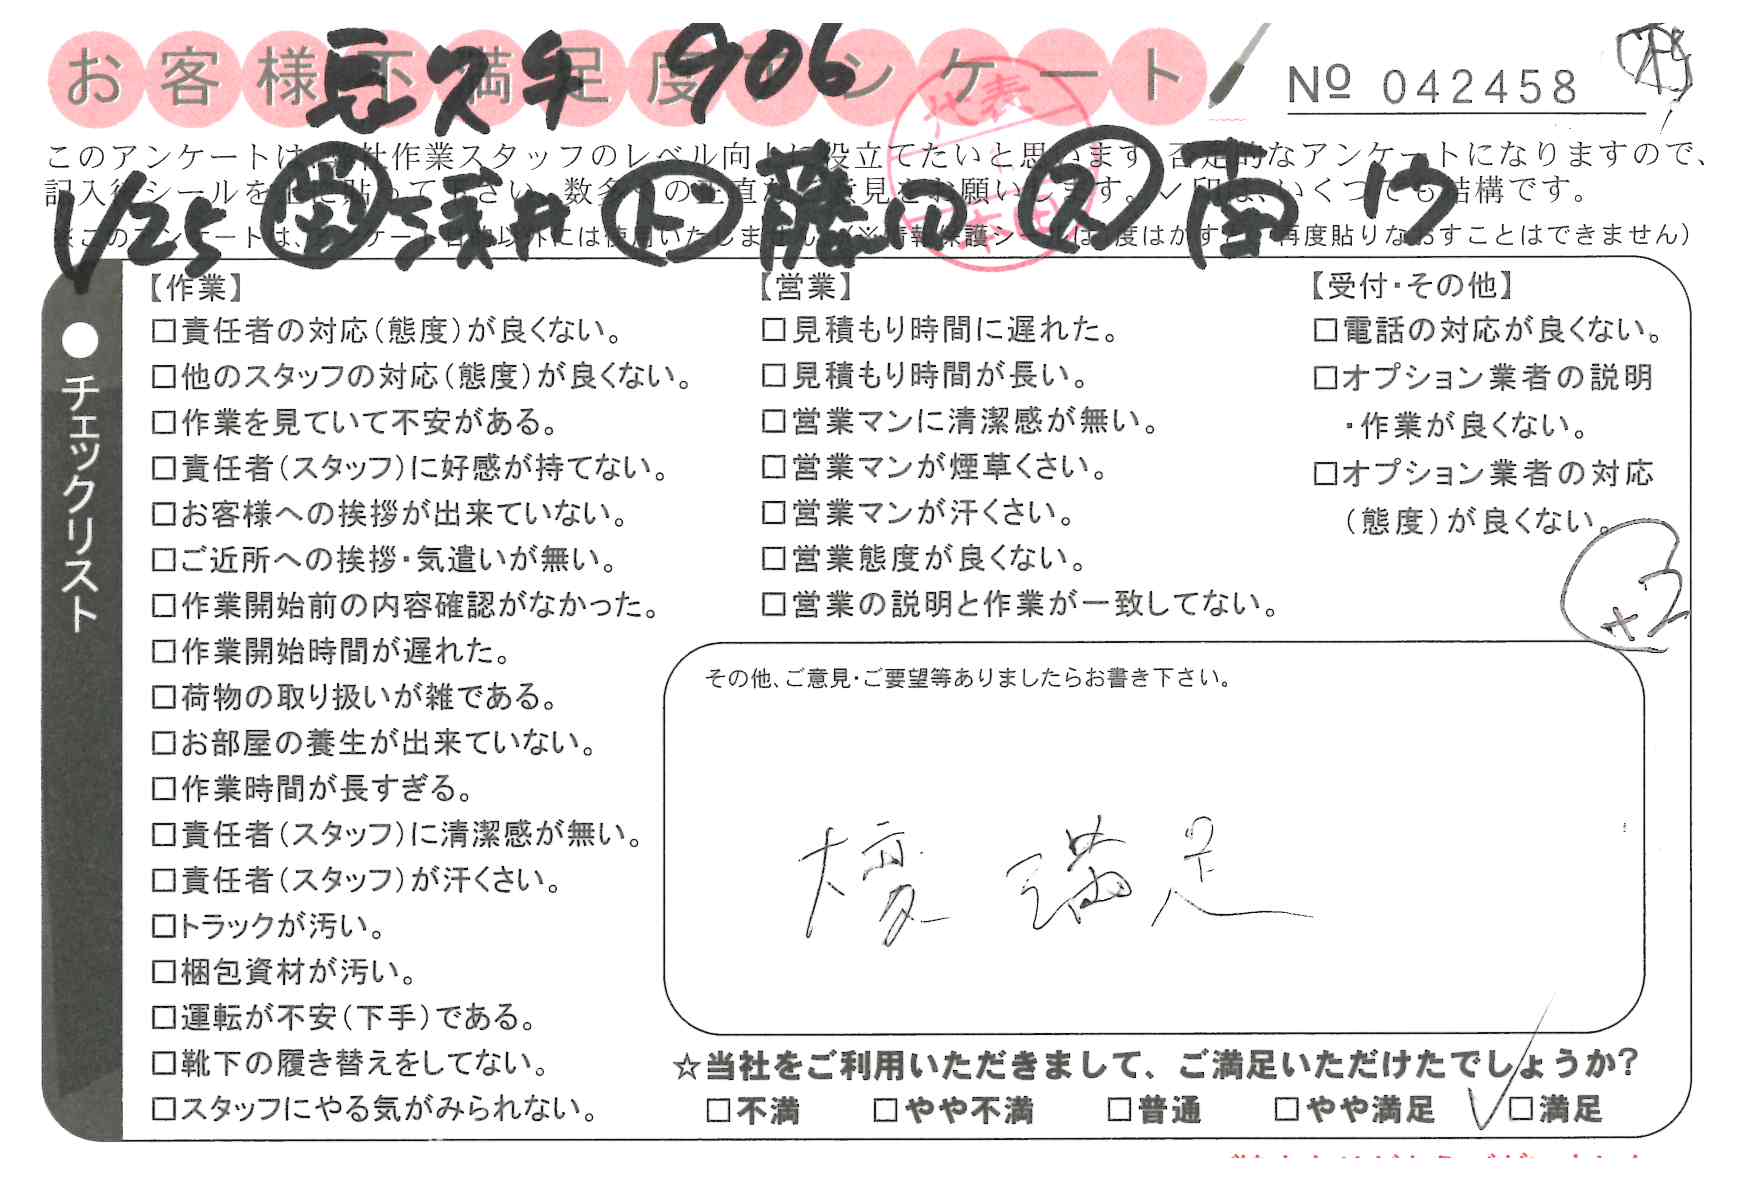 お客様不満足度アンケート
906
№ 042458
このアンケートは、当社作業スタッフのレベル向上に役立てたいと思います。否定的なアンケートになりますので、
記入後シールを上に貼って下さい。数多くの正直なご意見をお願いします。✓印は、いくつでも結構です。
※このアンケートは、アンケート目的以外には使用いたしません。(※情報保護シールは1度はがすと、再度貼りなおすことはできません)
代表
1/25 浅井 ト ス
チェックリスト
【作業】
□責任者の対応(態度)が良くない。
□他のスタッフの対応(態度)が良くない。
□作業を見ていて不安がある。
□責任者(スタッフ)に好感が持てない。
□お客様への挨拶が出来ていない。
□ご近所への挨拶・気遣いが無い。
□作業開始前の内容確認がなかった。
□作業開始時間が遅れた。
□荷物の取り扱いが雑である。
□お部屋の養生が出来ていない。
□作業時間が長すぎる。
□責任者(スタッフ)に清潔感が無い。
□責任者(スタッフ)が汗くさい。
□トラックが汚い。
□梱包資材が汚い。
□運転が不安(下手)である。
□靴下の履き替えをしてない。
□スタッフにやる気がみられない。
【営業】
□見積もり時間に遅れた。
□見積もり時間が長い。
□営業マンに清潔感が無い。
□営業マンが煙草くさい。
□営業マンが汗くさい。
□営業態度が良くない。
□営業の説明と作業が一致してない。
【受付・その他】
□電話の対応が良くない。
□オプション業者の説明
・作業が良くない。
□オプション業者の対応
(態度)が良くない。
+2
その他、ご意見・ご要望等ありましたらお書き下さい。
大変 満足
☆当社をご利用いただきまして、ご満足いただけたでしょうか?
□不満 □やや不満 □普通 □やや満足 ✓□満足